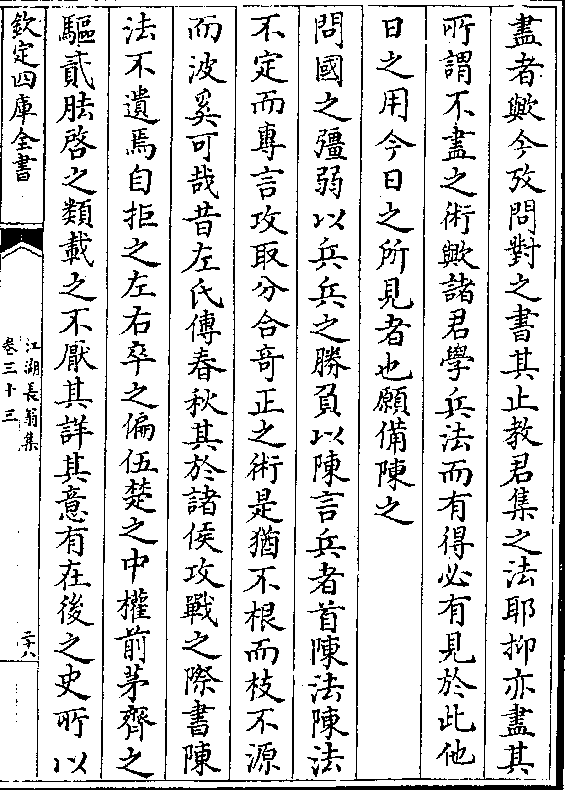 盡者歟今攷問對之書其止教君集之法耶抑亦盡其
所謂不盡之術歟諸君學兵法而有得必有見於此他
日之用今日之所見者也願備陳之
問國之彊弱以兵兵之勝負以陳言兵者首陳法陳法
不定而專言攻取分合奇正之術是猶不根而枝不源
而波奚可哉昔左氏傳春秋其於諸侯攻戰之際書陳
法不遺焉自拒之左右卒之偏伍楚之中權前茅齊之
驅貳胠啓之類載之不厭其詳其意有在後之史所以
欽定四庫全書
江湖長翁集
卷三十三
二十八